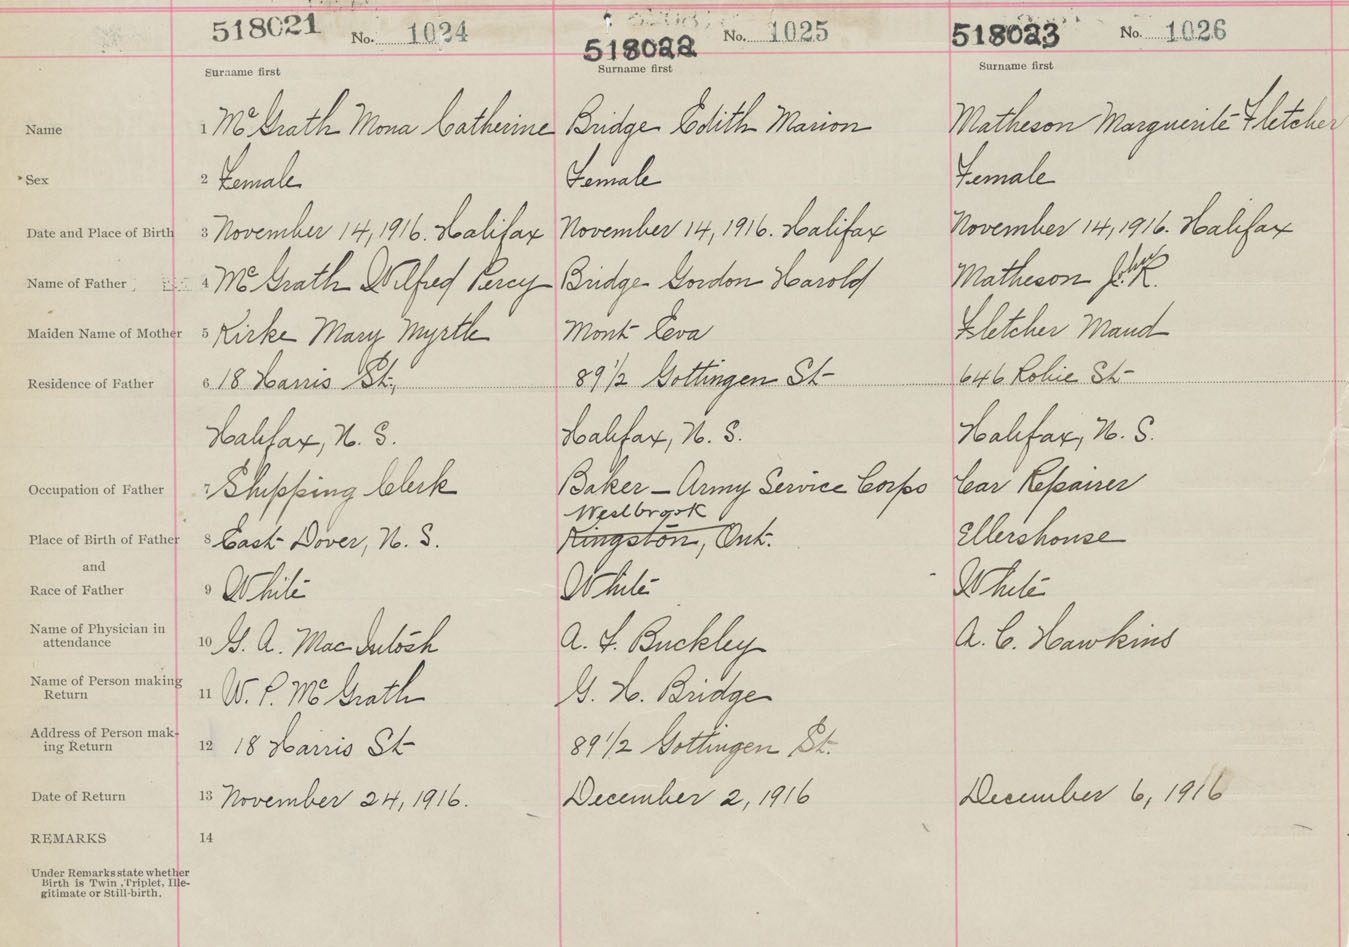 518021 No. 1024 518022 No. 1025 518023 No. 1026
Surname first Surname first Surname first
Name 1 McGrath Mona Catherine Bridge Edith Marion Matheson Marguerite Fletcher
*Sex 2 Female Female Female
Date and Place of Birth 3 November 14, 1916. Halifax November 14, 1916. Halifax November 14, 1916. Halifax
Name of Father 4 McGrath Wilfred Percy Bridge Gordon Harold Matheson John R.
Maiden Name of Mother 5 Kirke Mary Myrtle Mont Eva Fletcher Maud
Residence of Father 6 18 Harris St., 89 1/2 Gottingen St 646 Robie St
Halifax, N. S. Halifax, N. S. Halifax, N. S.
Occupation of Father 7 Shipping Clerk Baker - Army Service Corps Car Repairer
Westbrook
Place of Birth of Father 8 East Dover, N. S. Kingston, Ont. Ellershouse
and
Race of Father 9 White White White
Name of Physician in
attendance 10 G. A. MacIntosh A. F. Buckley A. C. Hawkins
Name of Person making
Return 11 W. P. McGrath G. H. Bridge
Address of Person mak-
ing Return 12 18 Harris St 89 1/2 Gottingen St.
Date of Return 13 November 24, 1916. December 2, 1916 December 6, 1916
REMARKS 14
Under Remarks state whether
Birth is Twin, Triplet, Ille-
gitimate or Still-birth.